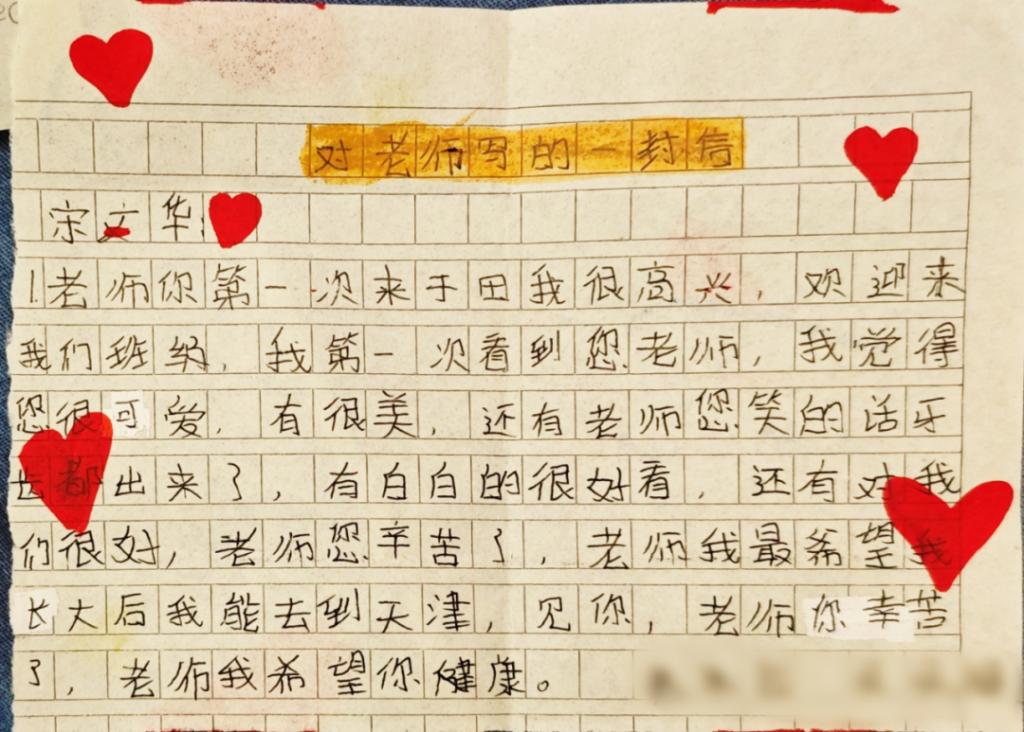 对老师写的一封信
宋文华:
1.老师你第一次来于田我很高兴，欢迎来
我们班级，我第一次看到您老师，我觉得
您很可爱，有很美，还有老师您笑的话牙
齿都出来了，有白白的很好看，还有对我
们很好，老师您辛苦了，老师我最希望我
长大后我能去到天津，见你，老师你幸苦
了，老师我希望你健康。